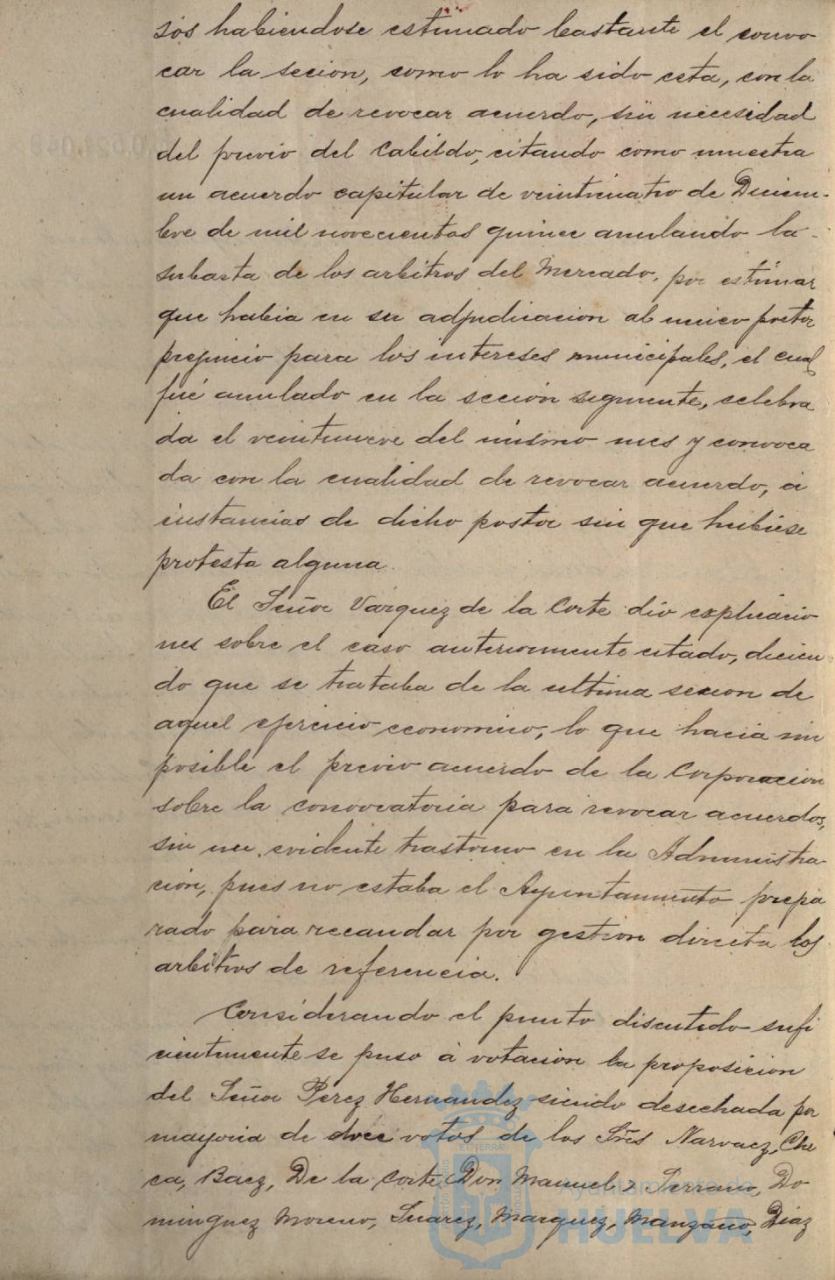 sos habiendose estimado bastante el convo
car la secion, como lo ha sido esta, con la
cualidad de revocar acuerdo, sin necesidad
del previo del Cabildo, citando como muestra
un acuerdo capitular de veinticuatro de Diciem-
bre de mil novecientos quince anulando la
subasta de los arbitros del Mercado, por estimar
que habia en su adjudicacion al unico postor
prejuicio para los intereses municipales, el cual
fué anulado en la seción siguiente, celebra
da el veintinueve del mismo mes y convoca
da con la cualidad de revocar acuerdo, á
instancias de dicho postor sin que hubiese
protesta alguna.
El Señor Vazquez de la Corte dio explicacio
nes sobre el caso anteriormente citado, dicien-
do que se trataba de la ultima sesion de
aquel ejercicio economico, lo que hacia im
posible el previo acuerdo de la Corporacion
sobre la convocatoria para revocar acuerdos,
sin un evidente trastorno en la Administra-
ción, pues no estaba el Ayuntamiento prepa
rado para recaudar por gestion directa los
arbitros de referencia.
Considerando el punto discutido sufi
cientemente se puso á votacion la proposicion
del Señor Perez Hernandez siendo desechada por
mayoria de doce votos de los Sres Narvaez, Che
ca, Baez, De la Corte Don Manuel, Serrano, Do
minguez Moreno, Suarez, Marquez, Manzano, Diaz
Ayuntamiento de
HUELVA